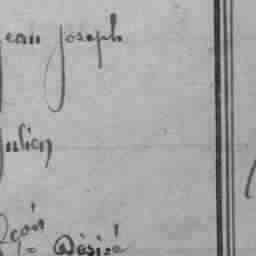 Jean Joseph
Julien
Désiré